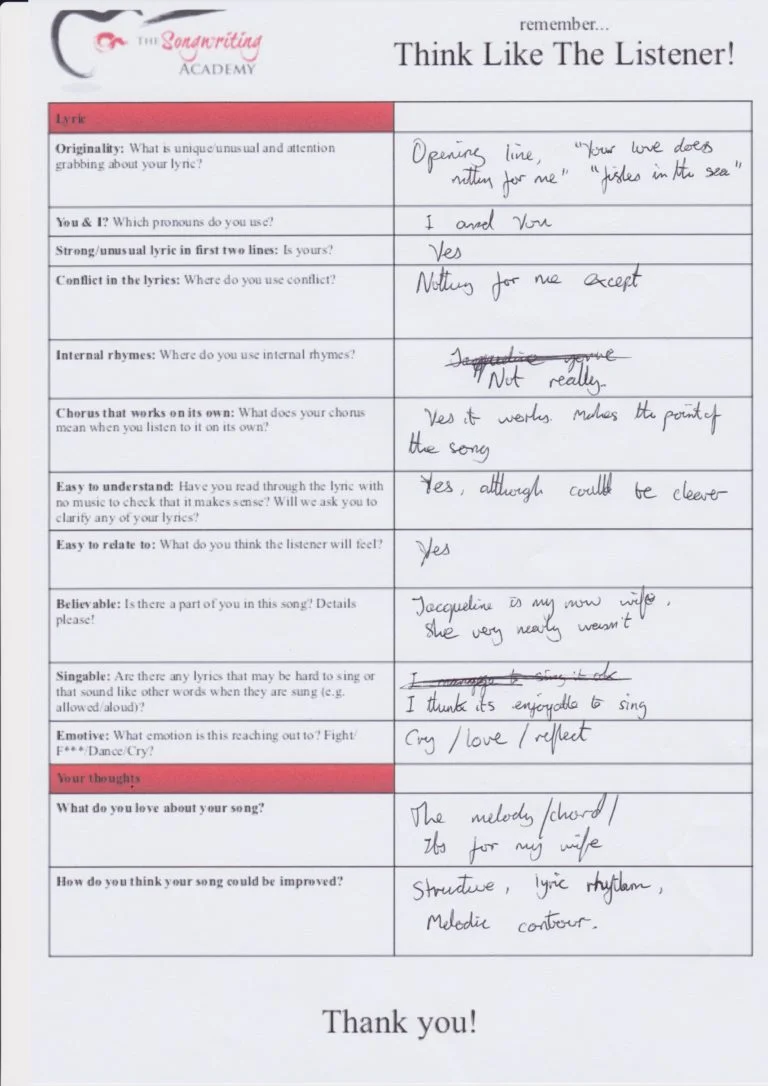 THE Songwriting
ACADEMY
remember...
Think Like The Listener!
Lyric
Originality: What is unique/unusual and attention
grabbing about your lyric?
Opening line, "Your love does
nothing for me" "fishes in the sea"
You & I? Which pronouns do you use?
I and You
Strong/unusual lyric in first two lines: Is yours?
Yes
Conflict in the lyrics: Where do you use conflict?
Nothing for me except
Internal rhymes: Where do you use internal rhymes?
Not really.
Chorus that works on its own: What does your chorus
mean when you listen to it on its own?
Yes it works. Makes the point of
the song
Easy to understand: Have you read through the lyric with
no music to check that it makes sense? Will we ask you to
clarify any of your lyrics?
Yes, although could be clearer
Easy to relate to: What do you think the listener will feel?
Yes
Believable: Is there a part of you in this song? Details
please!
Jacqueline is my now wife,
She very nearly wasn't
Singable: Are there any lyrics that may be hard to sing or
that sound like other words when they are sung (e.g.
allowed/aloud)?
I manage to sing it ok
I think its enjoyable to sing
Emotive: What emotion is this reaching out to? Fight/
F***/Dance/Cry?
Cry / love / reflect
Your thoughts
What do you love about your song?
The melody/chord/
Its for my wife
How do you think your song could be improved?
Structure, lyric rhythm,
Melodic contour.
Thank you!